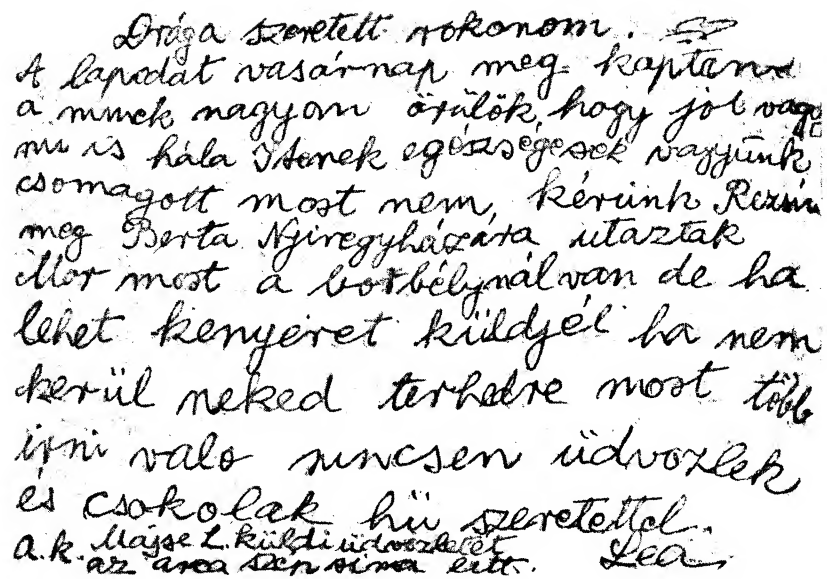 Drága szeretett rokonom.
A lapodat vasárnap meg kaptam
a minek nagyon örülök, hogy jol vagy
mi is hála Istenek egészségesek vagyunk
csomagott most nem, kérünk Rezsin
meg Berta Nyiregyházára utaztak
Mor most a borbélynál van de ha
lehet kenyeret küldjél ha nem
kerül neked terhedre most több
irni valo nincsen üdvozlek
és csokolak hü szeretettel.
a.k. L. küldi üdvozletét Lea.
az